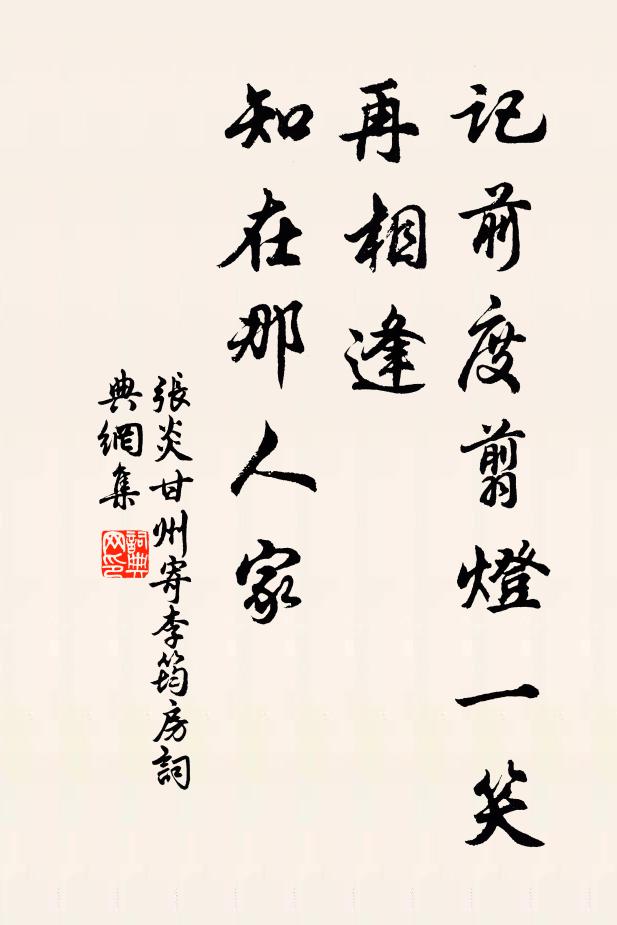 記前度翦燈一笑
再相逢
知在那人家
張炎甘州寄李筠房詞
典網集
詞典网印